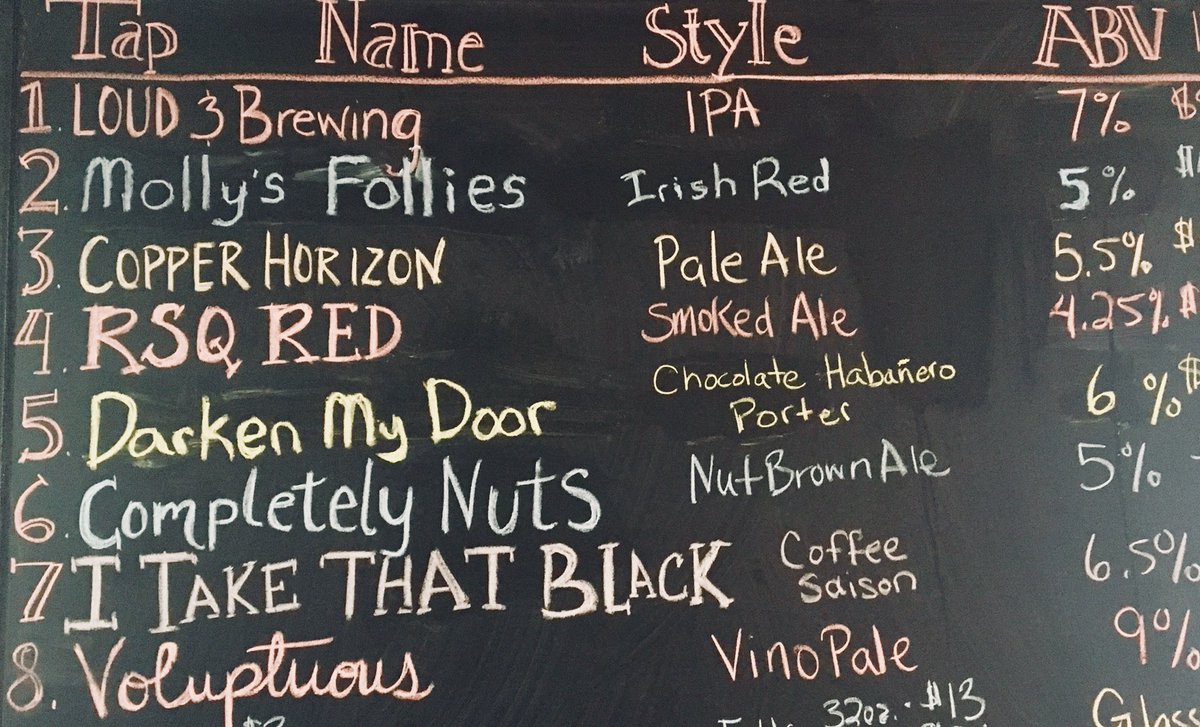 Tap Name Style ABV
1. LOUD & Brewing IPA 7% $
2. Molly's Follies Irish Red 5% $
3. COPPER HORIZON Pale Ale 5.5% $
4. RSQ RED Smoked Ale 4.25% $
5. Darken My Door Chocolate Habañero Porter 6% $
6. Completely Nuts Nut Brown Ale 5%
7. I TAKE THAT BLACK Coffee Saison 6.5%
8. Voluptuous Vino Pale 9%
32oz. $13